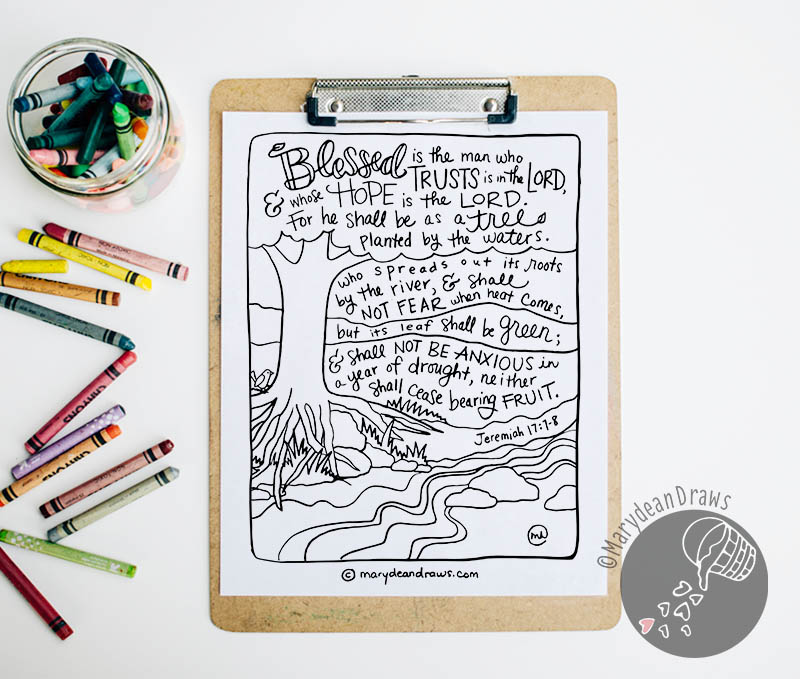 Blessed is the man who
TRUSTS is in the LORD,
& whose HOPE is the LORD.
For he shall be as a tree
planted by the waters.
who spreads out its roots
by the river, & shall
NOT FEAR when heat comes,
but its leaf shall be green;
& shall NOT BE ANXIOUS in
a year of drought, neither
shall cease bearing FRUIT.
Jeremiah 17:7-8
© marydeandraws.com
©MarydeanDraws